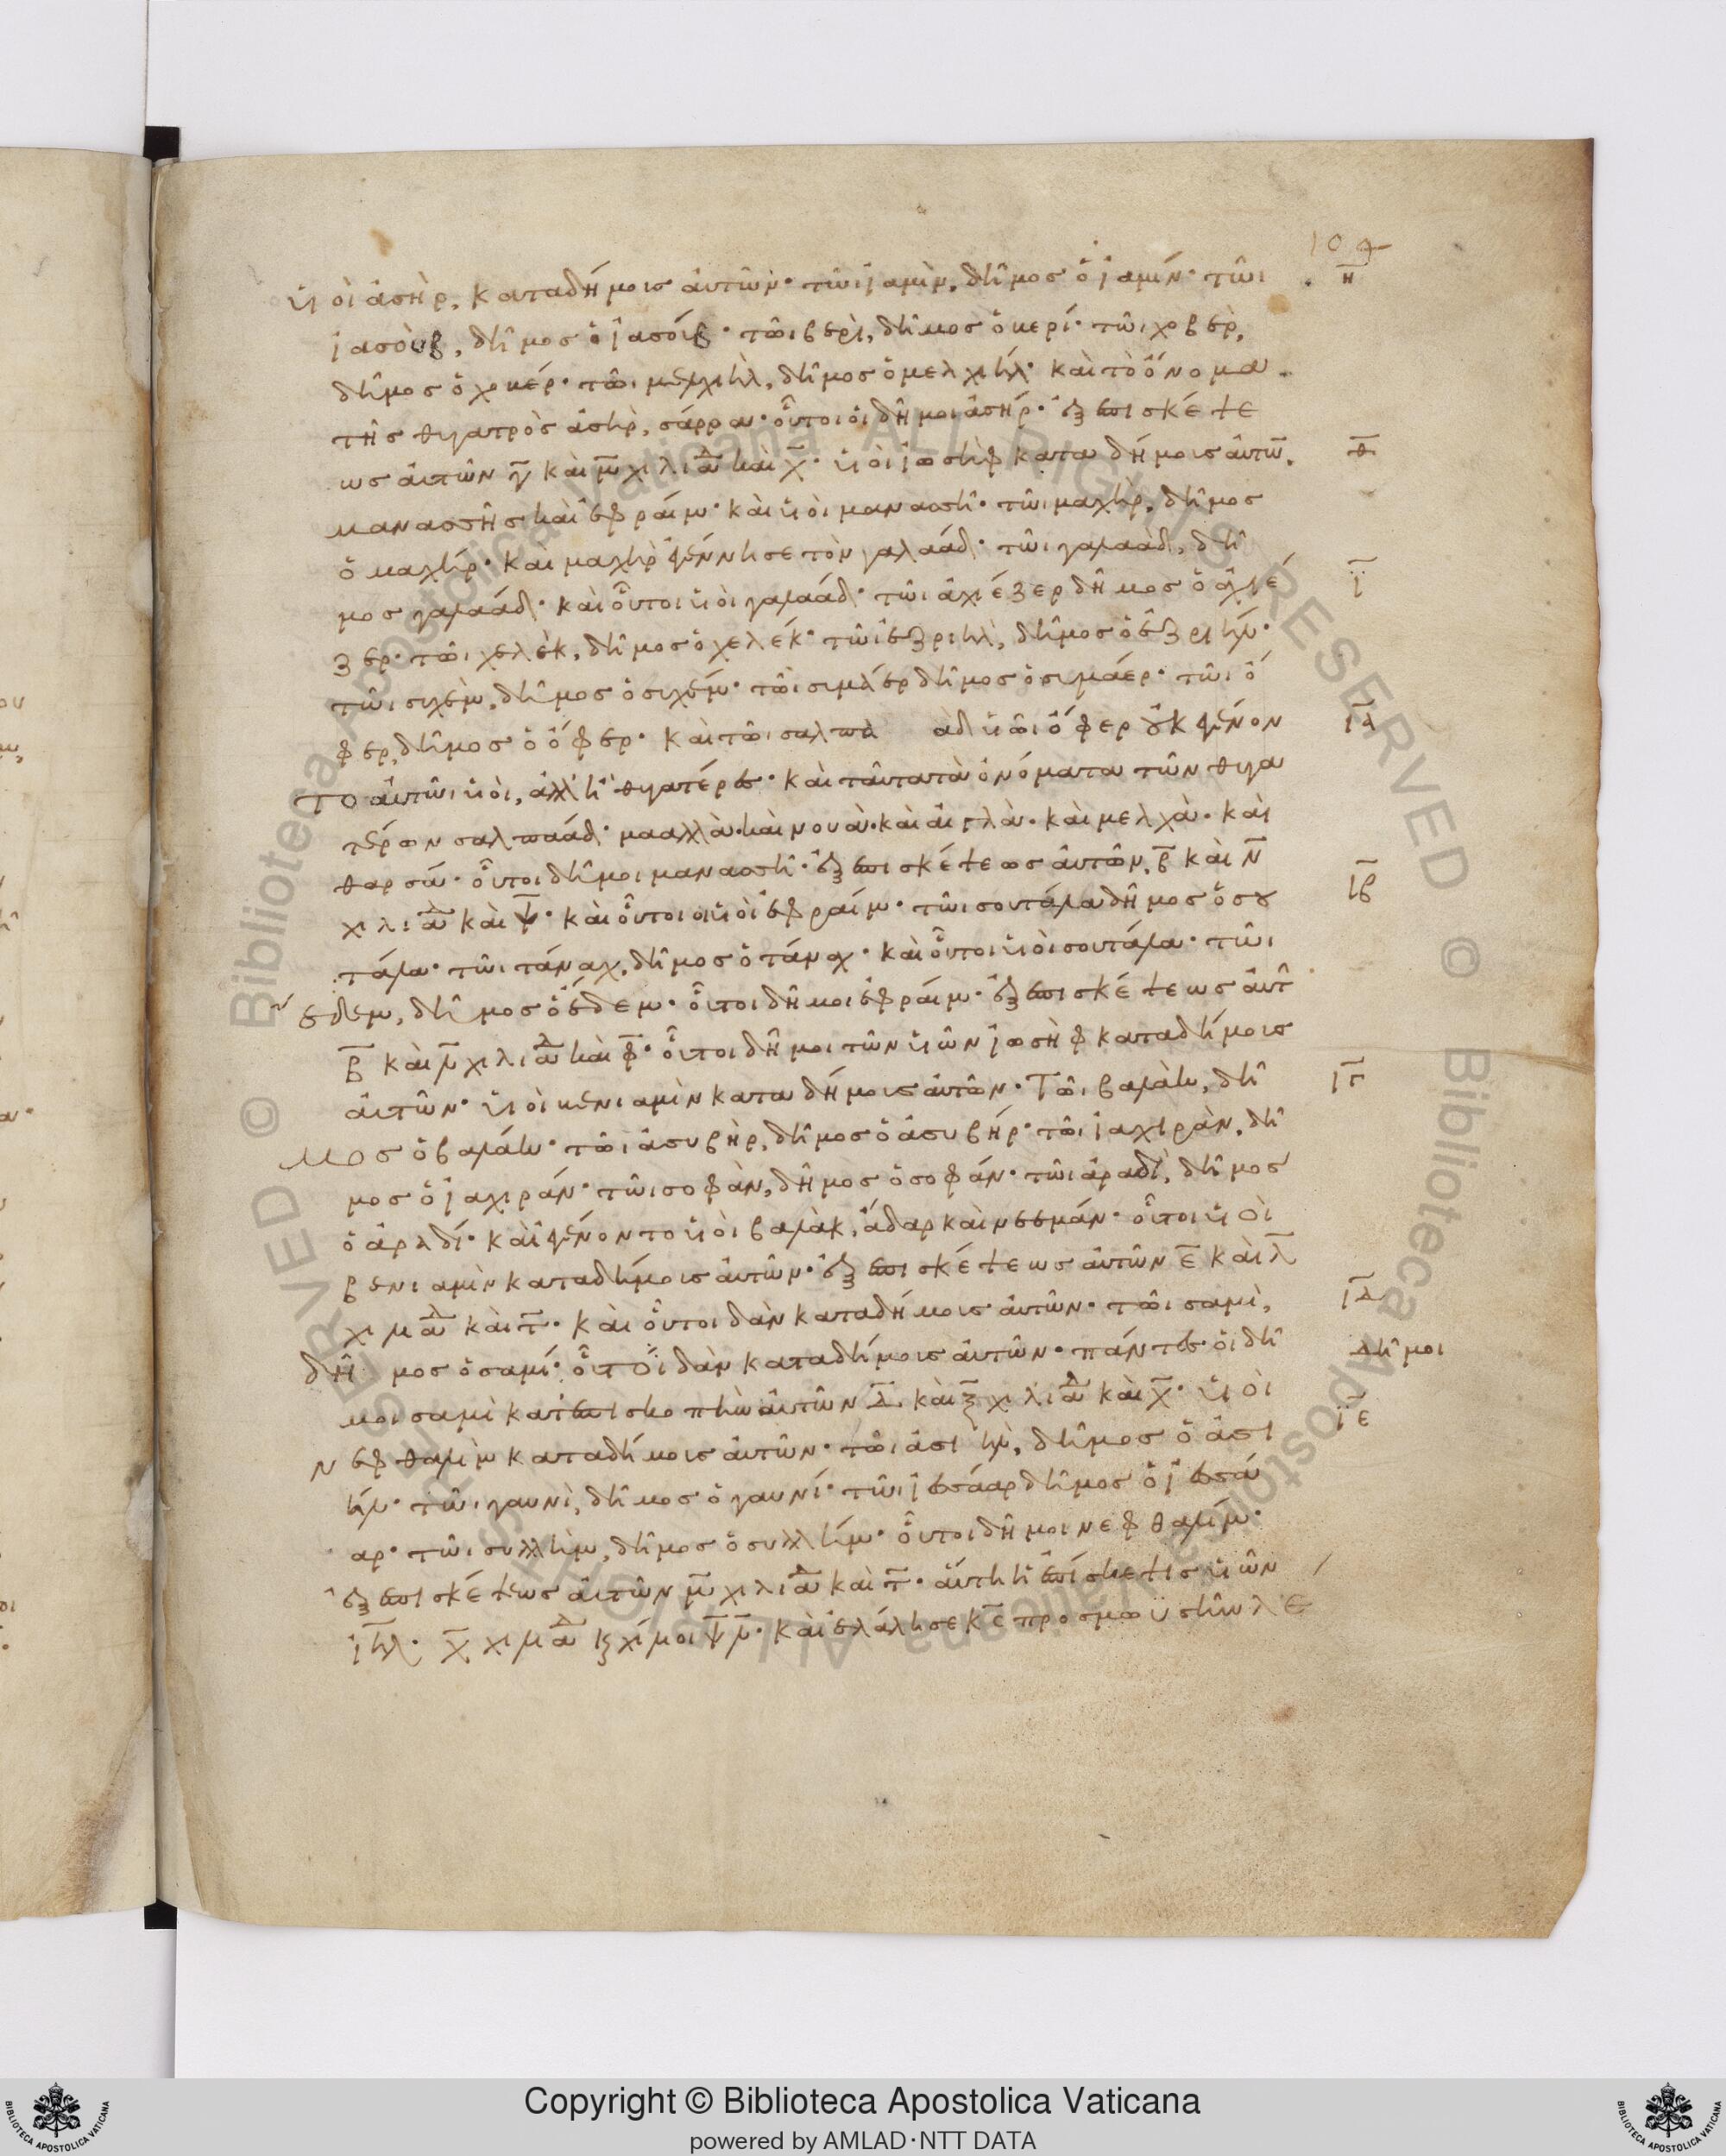 109
υἱοὶ ἀσὴρ, κατα δήμους αὐτῶν· τῶι ἰαμὶν, δῆμος ὁ ἰαμίν· τῶι
η̅
ἰασοὺβ, δῆμος ὁ ἰασούβ· τῶι βερὶ, δῆμος ὁ βερί· τῶι χοβὲρ,
δῆμος ὁ χοβέρ· τῶι μελχιὴλ, δῆμος ὁ μελχιήλ· καὶ τὸ ὄνομα
τῆς θυγατρὸς ἀσὴρ, σάρρα· οὗτοι οἱ δῆμοι ἀσήρ· ἐξ ἐπισκέψε
ως αὐτῶν γ̅ καὶ μ̅ χιλιάδ καὶ χ̅· υἱοὶ ἰωσὴφ κατα δήμους αὐτῶ̅.
θ̅
μανασσῆς καὶ ἐφράιμ· καὶ υἱοὶ μανασσῆ· τῶι μαχὴρ, δῆμος
ὁ μαχήρ· καὶ μαχὴρ ἐγέννησε τὸν γαλαάδ· τῶι γαλαὰδ, δῆ
μος γαλαάδ· καὶ οὗτοι υἱοὶ γαλαάδ· τῶι ἀχιέζερ δῆμος ὁ ἀχιέ
ι̅
ζερ· τῶι χελὲκ, δῆμος ὁ χελέκ· τῶι ἐζριὴλ, δῆμος ὁ ἐζριήλ·
τῶι συχὲμ, δῆμος ὁ συχέμ· τῶι συμάερ δῆμος ὁ συμάερ· τῶι ὄ
φερ, δῆμος ὁ ὄφερ· καὶ τῶι σαλπα αδ υἱῶι ὄφερ οὐκ ἐγένον
ια̅
το αὐτῶι υἱοὶ, ἀλλ' ἢ θυγατέρες· καὶ ταῦτα τὰ ὀνόματα τῶν θυγα
τέρων σαλπαάδ· μααλλὰ· καὶ νουὰ· καὶ αἰγλὰ· καὶ μελχὰ· καὶ
θαρσά· οὗτοι δῆμοι μανασσῆ· ἐξ ἐπισκέψεως αὐτῶν, β̅ καὶ ν̅
χιλιάδ καὶ ψ̅· καὶ οὗτοι οἱ υἱοὶ ἐφράιμ· τῶι σουτάλα δῆμος ὁ σου
ιβ̅
τάλα· τῶι τάναχ, δῆμος ὁ τάναχ· καὶ οὗτοι υἱοὶ σουτάλα· τῶι
ἐδεμ, δῆμος ὁ ἐδεμ· οὗτοι δῆμοι ἐφράιμ· ἐξ ἐπισκέψεως αὐτ
β̅ καὶ λ̅ χιλιάδ καὶ φ̅· οὗτοι δῆμοι τῶν υἱῶν ἰωσὴφ κατα δήμους
αὐτῶν· υἱοὶ βενιαμὶν κατα δήμους αὐτῶν· Τῶι βαλὲ, δῆ
ιγ̅
μος ὁ βαλέ· τῶι ἀσυβὴρ, δῆμος ὁ ἀσυβήρ· τῶι ἰαχιρὰν, δῆ
μος ὁ ἰαχιράν· τῶι σοφὰν, δῆμος ὁ σοφάν· τῶι ἀραδὶ, δῆμος
ὁ ἀραδί· καὶ ἐγένοντο υἱοὶ βαλὰκ, ἄδαρ καὶ νεεμάν· οὗτοι υἱοὶ
βενιαμὶν κατα δήμους αὐτῶν· ἐξ ἐπισκέψεως αὐτῶν ε̅ καὶ λ̅
χιλιάδ καὶ τ̅· καὶ οὗτοι δὰν κατα δήμους αὐτῶν· τῶι σαμὶ,
ιδ̅
δῆμος ὁ σαμί· οὗτοι δὰν κατα δήμους αὐτῶν· πάντες οἱ δῆ
δῆμοι
μοι σαμὶ κατ' ἐπισκοπὴν αὐτῶν δ̅ καὶ ξ̅ χιλιάδ καὶ χ̅· υἱοὶ
ιε̅
νεφθαλὶμ κατα δήμους αὐτῶν· τῶι ἀσιὴλ, δῆμος ὁ ἀσι
ήλ· τῶι γαυνὶ, δῆμος ὁ γαυνί· τῶι ἰεσάαρ δῆμος ὁ ἰεσά
αρ· τῶι συλλὴμ, δῆμος ὁ συλλήμ· οὗτοι δῆμοι νεφθαλίμ·
ἐξ ἐπισκέψεως αὐτῶν μ̅ χιλιάδ καὶ τ̅· αὕτη ἡ ἐπίσκεψις υἱῶν
ιη̅λ· χ̅ χιλιάδ κ χίλιοι ψ̅λ̅· καὶ ἐλάλησε κ̅ε̅ προς μωϋσῆν λε